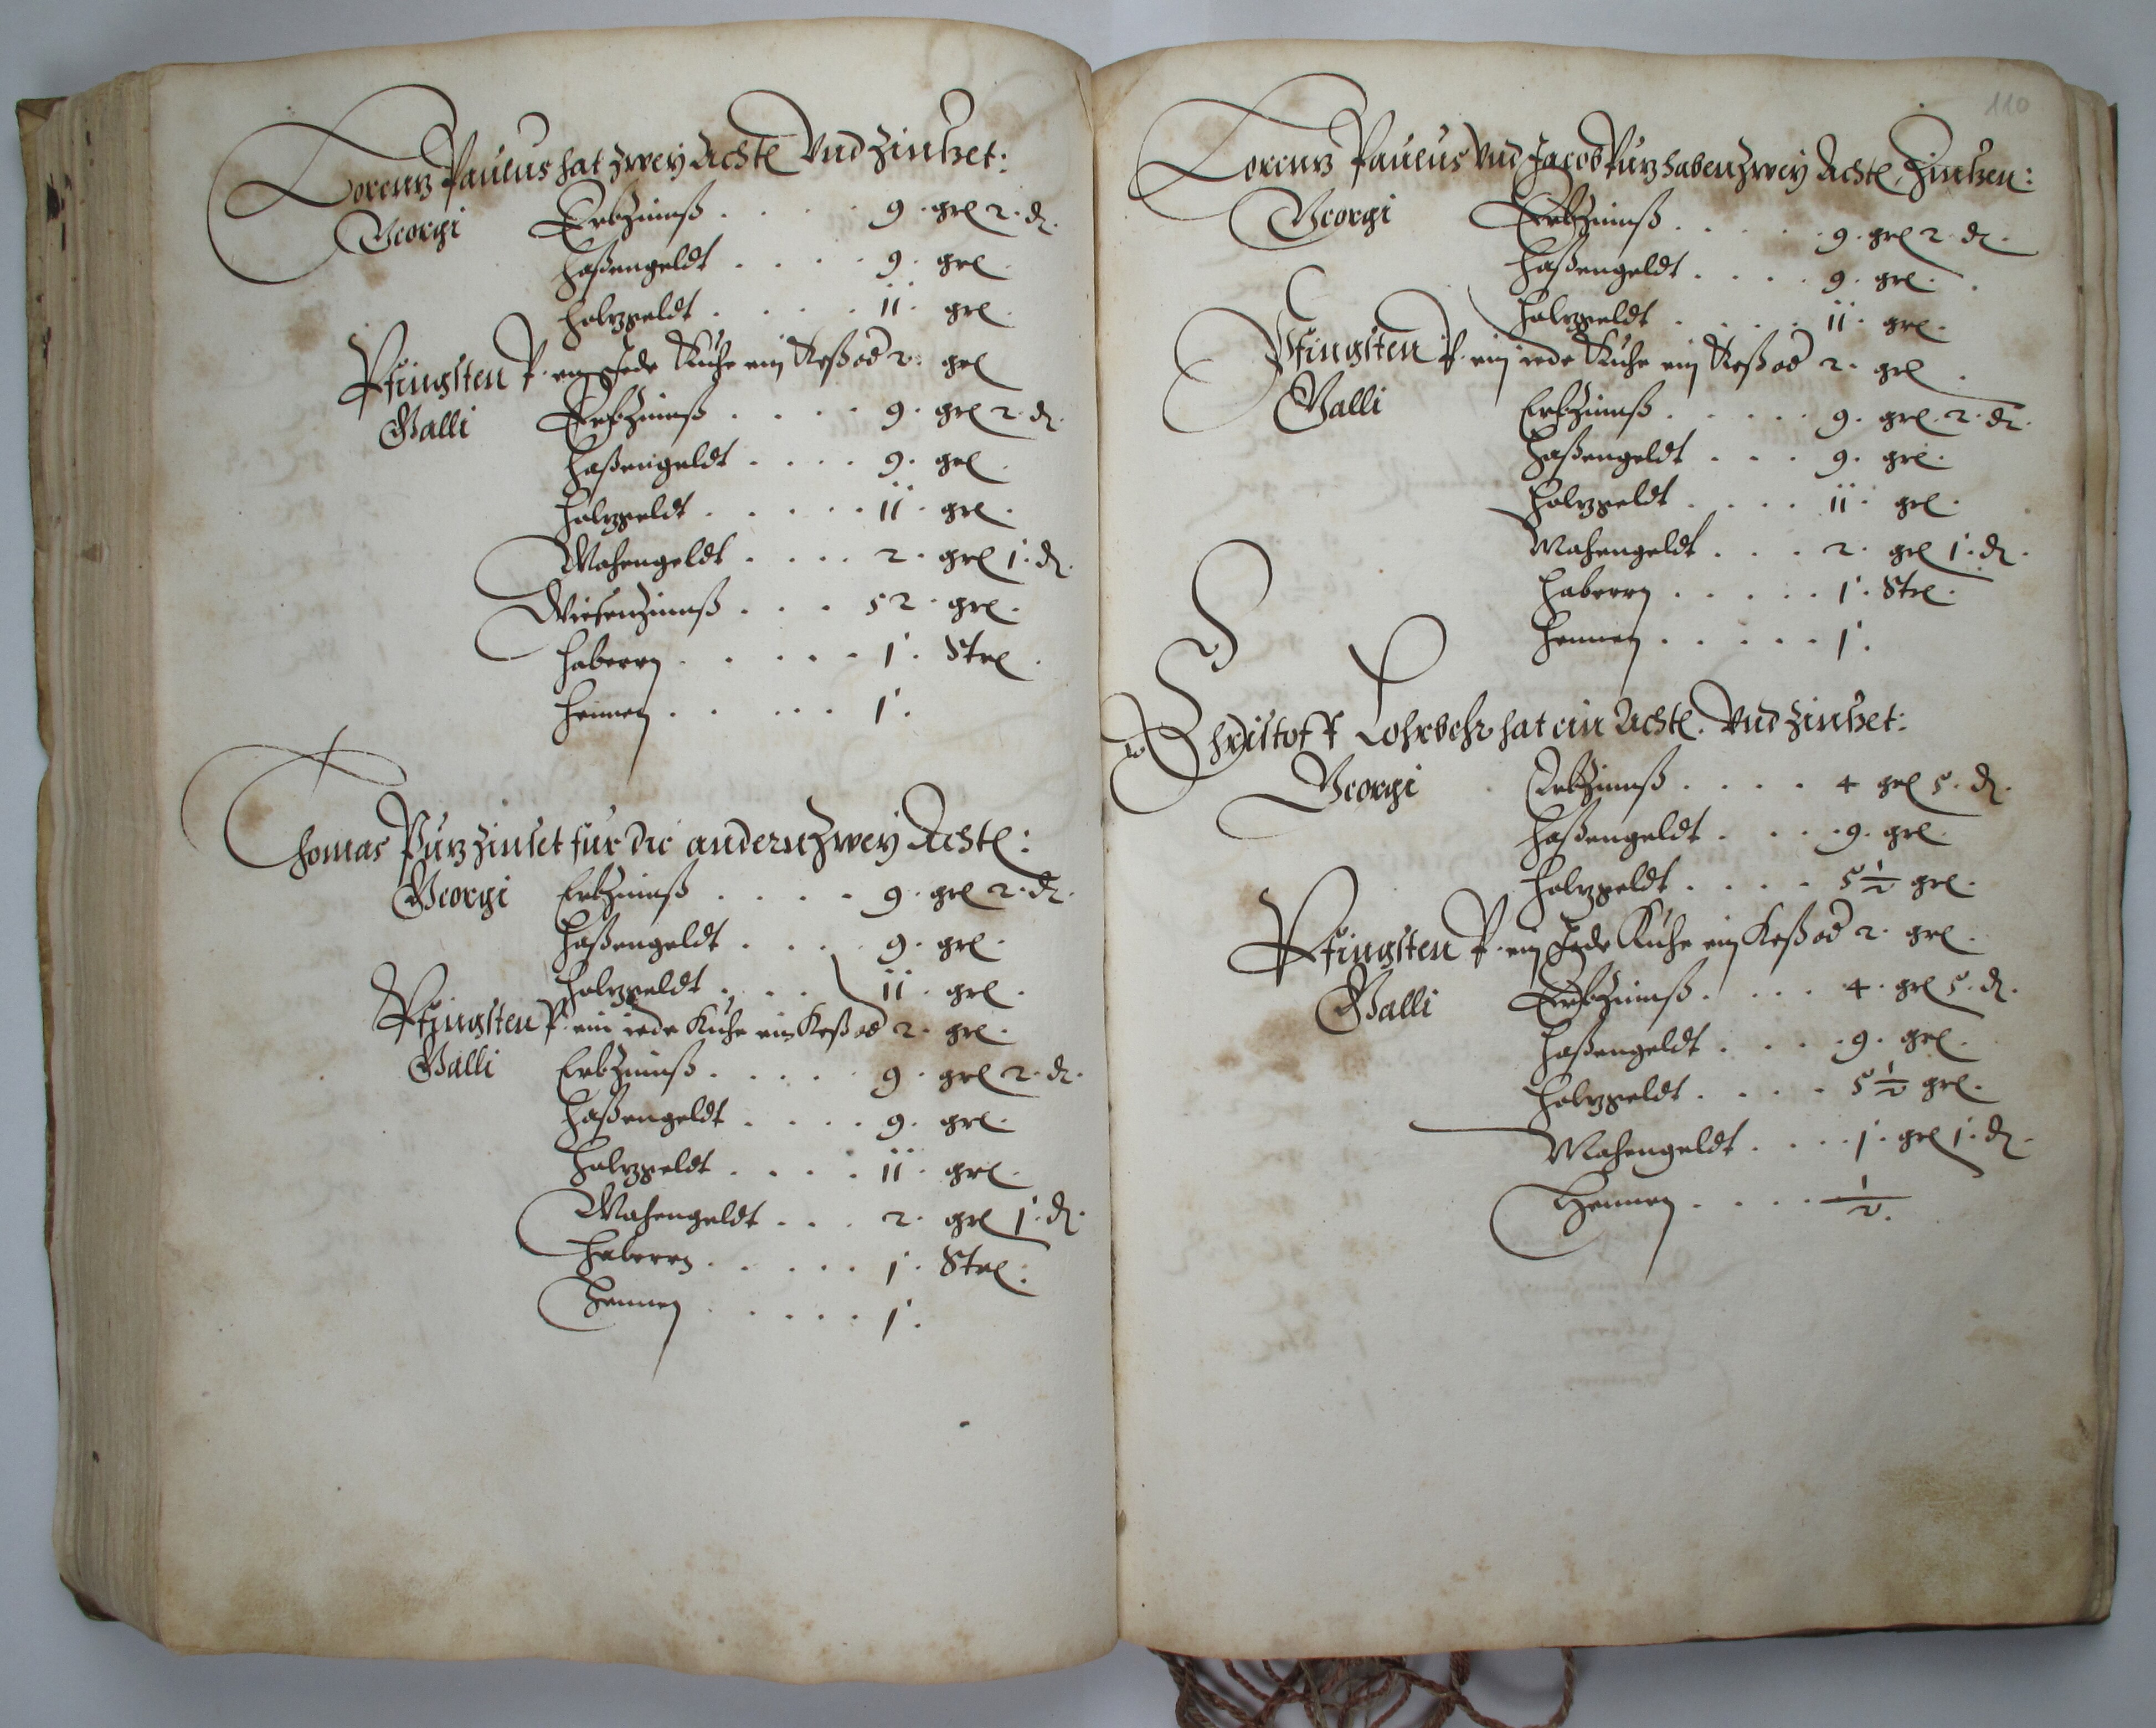 Lorentz Paulus hat zwey Achtl Vnd Zinßet:
Georgi Erbzinnß . . . . 9 . grl 2 . dl.
Haßengeldt . . . . 9 . grl
Holtzgeldt . . . . 11 . grl
Pfingsten P. ein Jede Kuhe ein Keß od 2 . grl
Galli Erbzinnß . . . . 9 . grl 2 . dl.
Haßengeldt . . . . 9 . grl
Holtzgeldt . . . . . 11 . grl .
Mahengeldt . . . . 2 . grl 1 . dl.
Wiesenzinnß . . . 52 . grl .
Habern . . . . . 1 . Strl .
Hennen . . . . . 1 .
Thomas Putz Zinset fur die andern Zwey Achtl:
Georgi Erbzinnß . . . . 9 . grl 2 . dl.
Haßengeldt . . . . 9 . grl .
Holtzgeldt . . . . 11 . grl .
Pfingsten P. ein jede Kuhe ein Keß od 2 . grl .
Galli Erbzinnß . . . . . 9 . grl 2 . dl.
Haßengeldt . . . . 9 . grl .
Holtzgeldt . . . . 11 . grl .
Mahengeldt . . . 2 . grl 1 . dl.
Habern . . . . . 1 . Strl .
Hennen . . . . . 1 .
110
Lorentz Paulus Vnd Jacob Putz haben Zwey Achtl, Zinßen:
Georgi Erbzinnß . . . . . 9 . grl 2 . dl.
Haßengeldt . . . . 9 . grl .
Holtzgeldt . . . . 11 . grl .
Pfingsten P. ein jede Kuhe ein Keß od 2 . grl .
Galli Erbzinnß . . . . . 9 . grl . 2 . dl.
Haßengeldt . . . 9 . grl .
Holtzgeldt . . . . 11 . grl .
Mahengeldt . . . 2 . grl 1 . dl.
Habern . . . . . 1 . Strl .
Hennen . . . . . 1 .
Christoff hat ein Achtl. Vnd Zinßet:
Georgi Erbzinnß . . . . 4 grl 5 . dl.
Haßengeldt . . . 9 . grl .
Holtzgeldt . . . . 5 1/2 grl .
Pfingsten P. ein Jede Kuhe ein Keß od 2 . grl .
Galli Erbzinnß . . . . 4 . grl 5 . dl.
Haßengeldt . . . . 9 . grl .
Holtzgeldt . . . . 5 1/2 grl .
Mahengeldt . . . . 1 . grl 1 . dl.
Hennen . . . . 1/2 .